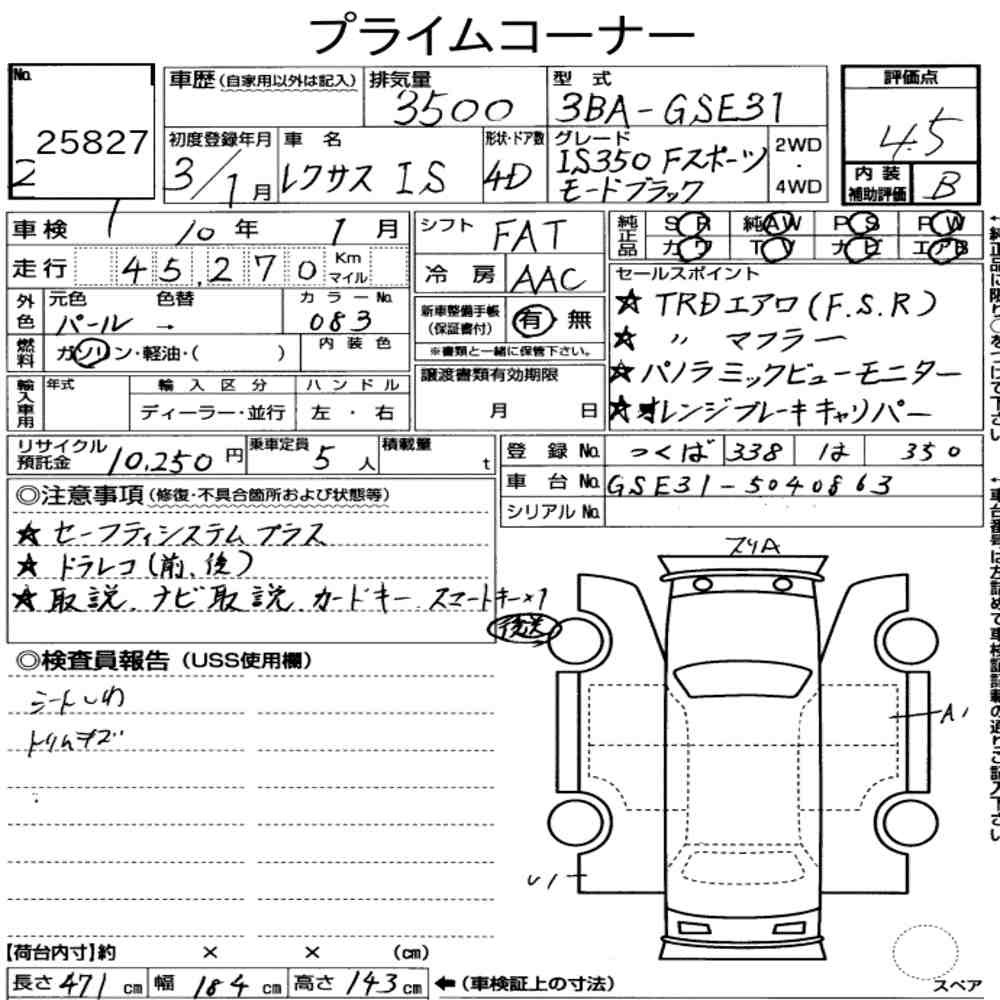 プライムコーナー
No.
25827
2
車歴 (自家用以外は記入)
排気量
3500
型式
3BA-GSE31
評価点
4.5
初度登録年月
3/1月
車名
レクサス IS
形状・ドア数
4D
グレード
IS350 Fスポーツ
モードブラック
2WD
・
4WD
内装
補助評価
B
車検 10年 1月
シフト FAT
純正品 SR 純AW PS PW
カワ TV ナビ エアB
走行 45,270 Km マイル
冷房 AAC
セールスポイント
★ TRDエアロ(F.S.R)
★ 〃 マフラー
★ パノラミックビューモニター
★ オレンジブレーキキャリパー
外色 元色 色替 カラーNo.
パール → 083
新車整備手帳
(保証書付)
有 無
※書類と一緒に保管下さい。
燃料 ガソリン・軽油・( ) 内装色
輸入車用 年式 輸入区分 ハンドル
ディーラー・並行 左・右
譲渡書類有効期限
月 日
リサイクル
預託金 10,250円
乗車定員 5人
積載量 t
登録No. つくば 338 は 350
車台No. GSE31-5040863
シリアルNo.
◎注意事項 (修復・不具合箇所および状態等)
★ セーフティシステムプラス
★ ドラレコ(前、後)
★ 取説、ナビ取説、カードキー、スマートキー×1
後送
◎検査員報告 (USS使用欄)
シートしわ
トリムキズ
フリA
A1
U1
スペア
【荷台内寸】約 × × (cm)
長さ 471 cm 幅 184 cm 高さ 143 cm ←(車検証上の寸法)
←純正品に限り○をつけて下さい
←車台番号は左詰めで車検証記載の通りご記入下さい